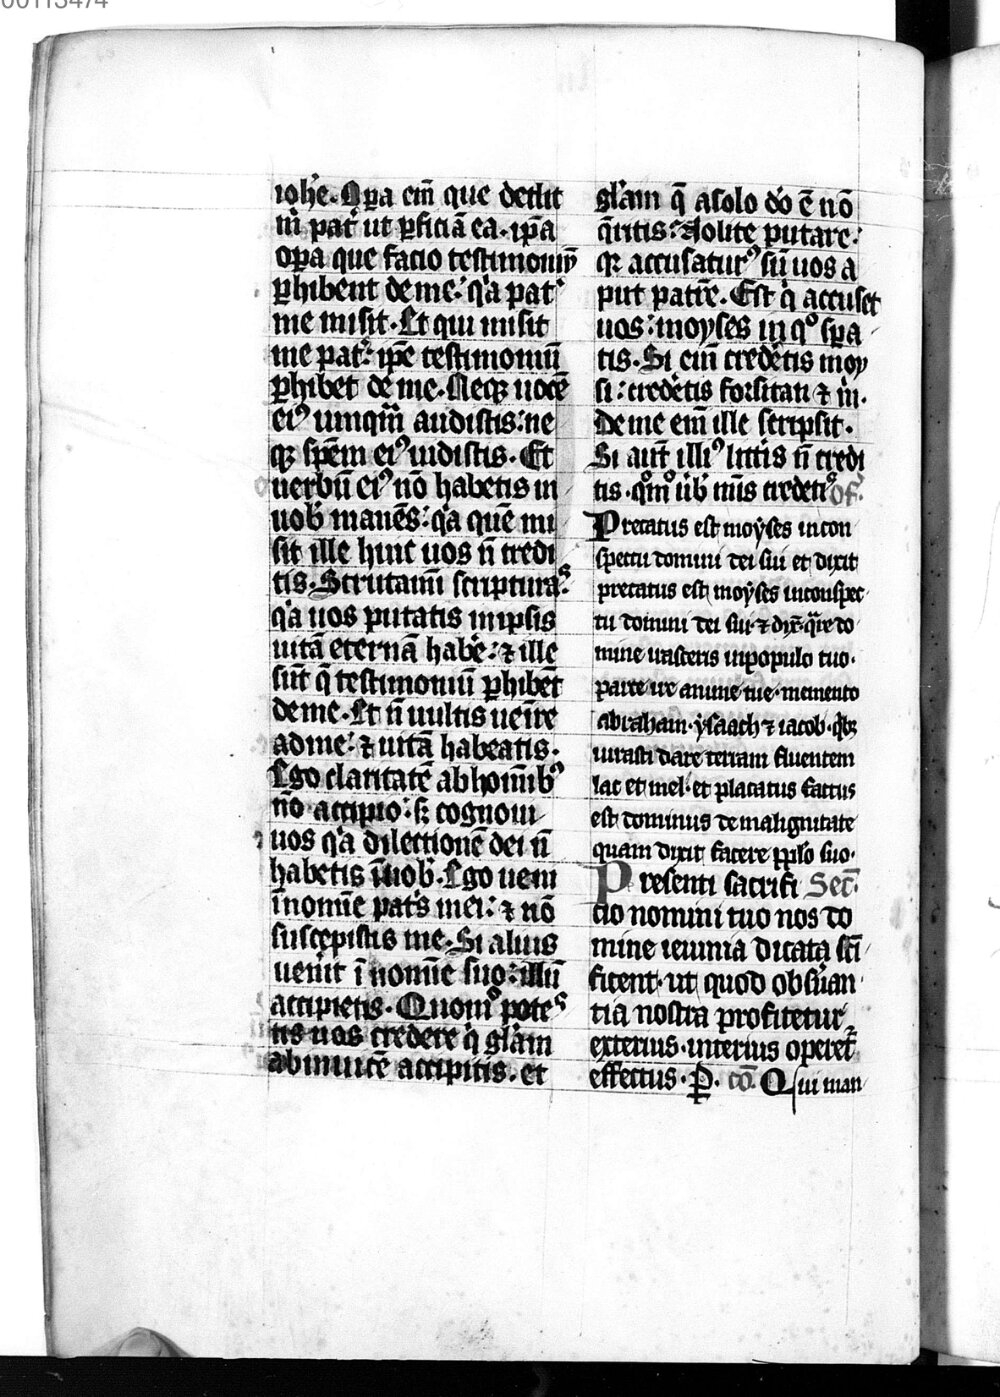 00113474
ioh̄e. Opa em̄ que dedit
m̄ pat̄ ut ꝑficiā ea. ip̄a
opa que facio testimoniū
ꝑhibent de me: qͥa patͬ
me misit. Et qui misit
me patͬ: ip̄e testimoniū
ꝑhibet de me. Neqꝫ uocē
eiꝰ umqm̄ audistis: ne
qꝫ spēm eiꝰ uidistis. Et
uerbū eiꝰ nō habetis in
uob̄ manēs: qͥa quē mi
sit ille huic uos n̄ credi
tis. Scrutamī scripturas
qͥa uos putatis inipsis
uitā eternā habe͛: ⁊ ille
sūt q̄ testimoniū ꝑhibēt
de me. Et n̄ uultis uenīre
adme: ⁊ uitā habeatis.
Ego claritatē abhomībꝰ
nō accipio: sꝫ cognoui
uos qͥa dilectionē dei n̄
habetis īuob̄. Ego ueni
īnomīe patͥs mei: ⁊ nō
suscepistis me. Si alius
uen̄it ī nomīe suo: illū
accipietis. Quomͦ potes
tis uos credere qͥ gl̄am
abinuicē accipitis. et
gl̄am q̄ asolo dō ē nō
q̄ritis: Nolite putare:
qꝫ accusaturꝰ sū uos a
put patrē. Est qͥ accuset
uos: moyses in qͦ spa
tis. Si em̄ crederetis moy
si: crederetis forsitan ⁊ m̄.
de me em̄ ille scripsit.
Si aut̄ illiꝰ litt̄is n̄ credi
tis. qͦmͦ ūb̄ m̄is credetͥꝰ of.
Precatus est moẏses incon
spectu domini dei sui et dixit
precatus est moẏses inconspec
tu domini dei sui ⁊ dix̄. qͣre do
mine irasceris inpopulo tuo.
parce ire anime tue. memento
abraham. ẏsaach ⁊ iacob. qͥbꝫ
iurasti dare terram fluentem
lac et mel. et placatus factus
est dominus de malignitate
quam dixit facere pp̄lo suo.
Presenti sacrifi Sec̄.
cio nomini tuo nos do
mine ieiunia dicata sc̄i
ficent. ut quod obs̄uan
tia nostra profitetur
exterius. interius operet᷑
effectus. P. cō. Qui man